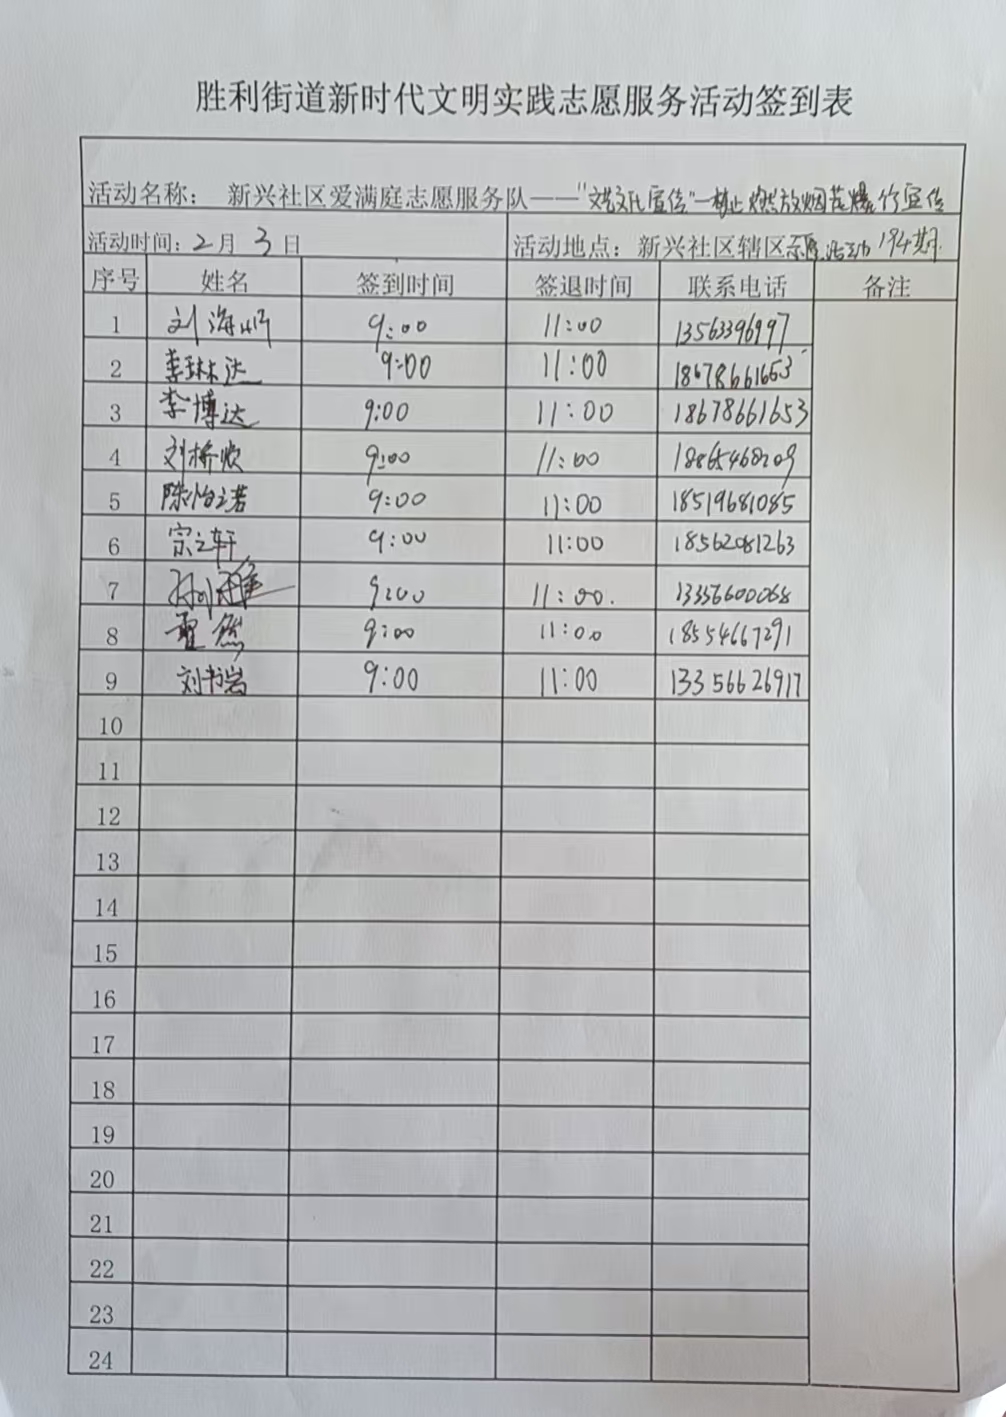 胜利街道新时代文明实践志愿服务活动签到表
活动名称： 新兴社区爱满庭志愿服务队——“文艺文化宣传”—禁止燃放烟花爆竹宣传
活动时间：2月 3日 活动地点：新兴社区辖区 活动194期.
序号 姓名 签到时间 签退时间 联系电话 备注
1 刘海 9:00 11:00 13563396997
2 李琳达 9:00 11:00 18678661653
3 李博达 9:00 11:00 18678661653
4 刘桥欣 9:00 11:00 18865468209
5 陈怡诺 9:00 11:00 18519681085
6 宗之轩 9:00 11:00 18562081263
7 9:00 11:00. 13356600068
8 然 9:00 11:00 18554667291
9 刘书岩 9:00 11:00 13356626917
10
11
12
13
14
15
16
17
18
19
20
21
22
23
24